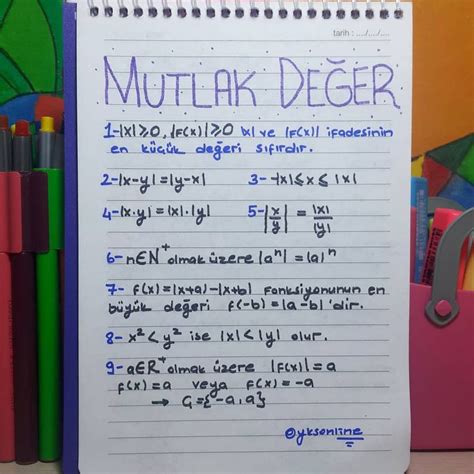 tarih : .../.../...
MUTLAK DEĞER
1-|x|≥0, |f(x)|≥0 |x| ve |f(x)| ifadesinin
en küçük değeri sıfırdır.
2-|x-y|=|y-x| 3- -|x|≤x≤|x|
4-|x.y|=|x|.|y| 5-|x/y|=|x|/|y|
6- n∈N⁺ olmak üzere |aⁿ|=|a|ⁿ
7- f(x)=|x+a|-|x+b| fonksiyonunun en
büyük değeri f(-b)=|a-b|'dir.
8- x²<y² ise |x|<|y| olur.
9- a∈R⁺ olmak üzere |f(x)|=a
f(x)=a veya f(x)=-a
→ Ç={-a,a}
@yksonline